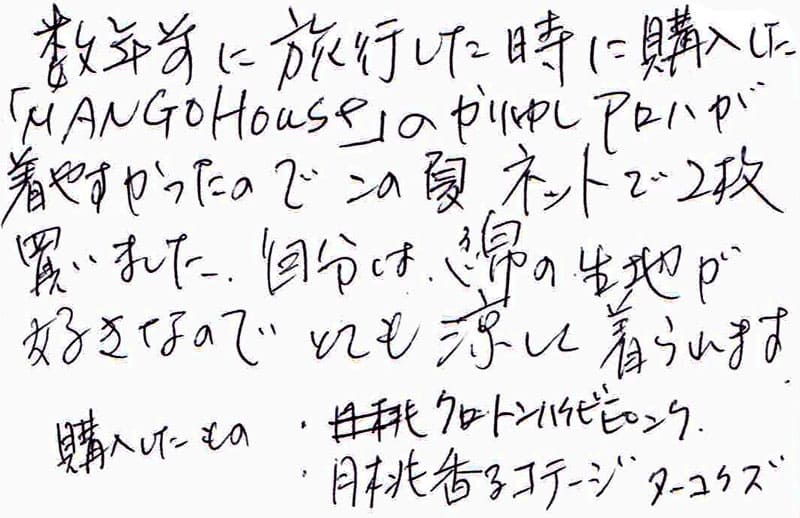 数年前に旅行した時に購入した
「MANGO House」のかりゆしアロハが
着やすかったのでこの夏 ネットで2枚
買いました。自分は、綿の生地が
好きなので とても 涼しく 着られます
購入したもの ・ クロトンハイビピンク.
・月桃香るコテージ ターコイズ